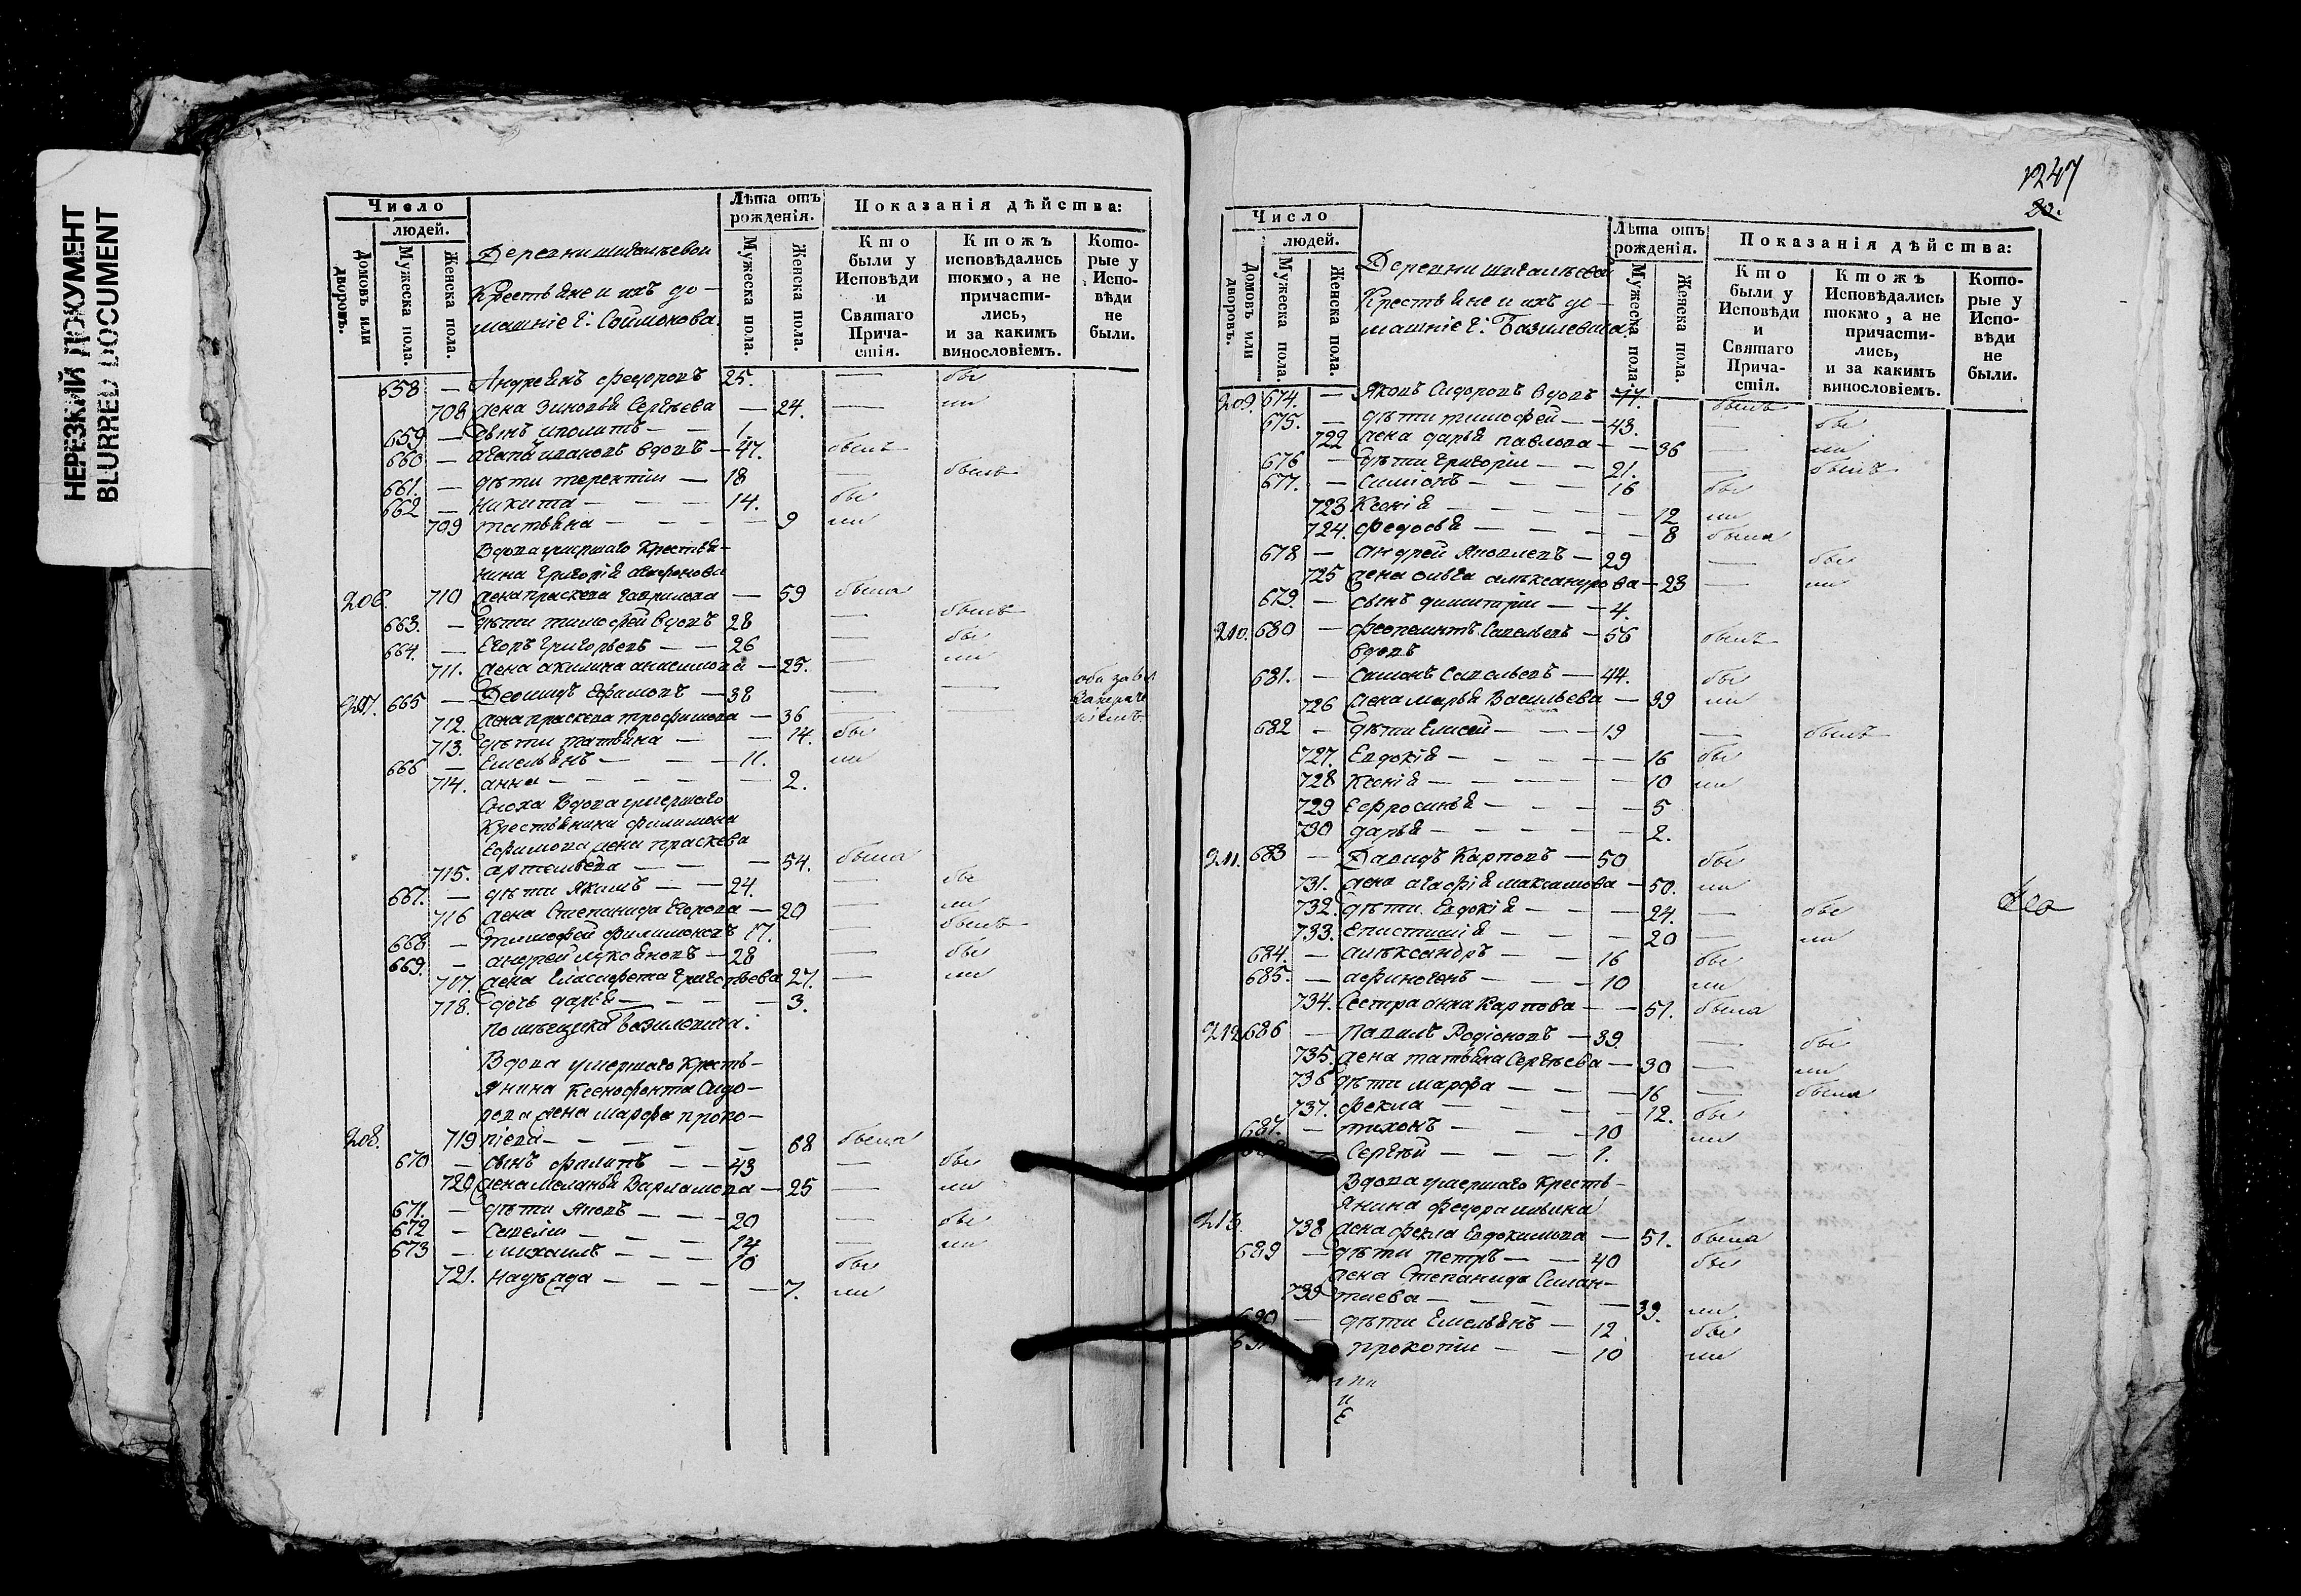 НЕРЕЗКИЙ ДОКУМЕНТ
BLURRED DOCUMENT
Число
людей.
Домовъ или дворовъ.
Мужеска пола.
Женска пола.
Крестьяне и ихъ до-
машніе г: Соймонова.
Лѣта отъ рожденія.
Мужеска пола.
Женска пола.
Показанія дѣйства:
Кто были у Исповѣди и Святаго Прича-стія.
Ктожъ исповѣдались токмо, а не причасти-лись, и за какимъ винословіемъ.
Кото-рые у Испо-вѣди не были.
658 — Андреянъ Федоровъ 25. — бы
708 жена Зиновья Сергѣева — 24. — ли
659. — сынъ иполитъ — — 1.
660 — агапъ ивановъ вдовъ — 47. былъ
661. — дѣти терентіи — 18 — былъ
662 — никита — — — 14. бы
709 татьяна — — — — 9 ли
Вдова умершаго Крестья-
нина григорія агафонова
206. 710 жена праскева гаврилова — 59 была
663. — дѣти тимофей вдовъ 28 — былъ
664. — Егоръ григорьевъ — — 26 — бы
711. жена акилина анисимова — 25. — ли
207. 665 — Деомидъ Ефимовъ — 38 — —
712. жена праскева трофимова — 36 — —
713. дѣти татьяна — — 14. бы
666 — Емельянъ — — — 11. ли
714. анна — — — — — 2.
Сноха Вдова умершаго
Крестьянина филимона
Ефимова жена праскева
715. артемьева — — — 54. была
667. — дѣти Якимъ — — 24. — бы
716 жена Степанида Егорова — 20 — ли
668 — тимофей филимоновъ 17. — былъ
669. — андрей лукояновъ — 28 — бы
717. жена Елисафета григорьева 27. — ли
718. дочь дарья — — — — 3.
помѣщика Базилевича:
Вдова умершаго Кресть-
янина Ксенофонта Сидо-
рова жена марфа проко-
208. 719 піева — — — — — 68 была
670 — сынъ филипъ — — 43 — бы
720 жена меланья Варламова — 25 — ли
671. — дѣти Яковъ — — — 20 — бы
672 — Савелій — — — 14 — ли
673 — михаилъ — — — 10 бы
721. надѣжда — — — — 7. ли
1247
20.
Число
людей.
Домовъ или дворовъ.
Мужеска пола.
Женска пола.
Крестьяне и ихъ до-
машніе г: Базилевича.
Лѣта отъ рожденія.
Мужеска пола.
Женска пола.
Показанія дѣйства:
Кто были у Исповѣди и Святаго Прича-стія.
Ктожъ Исповѣдались токмо, а не причасти-лись, и за какимъ винословіемъ.
Кото-рые у Испо-вѣди не были.
209. 674. — Яковъ Сидоровъ вдовъ 77. былъ
675. — дѣти тимофей — — 43. — бы
722 жена дарья павлова — — 36 — ли
676 — дѣти григоріи — — 21. — былъ
677. — Симіонъ — — — 16 бы
723 Ксенія — — — — — 12 ли
724. федосья — — — — 8 была
678 — андрей Яковлевъ — 29 — бы
725 жена ольга александрова — 23 — ли
679. — сынъ димитріи — — 4.
210. 680 — феопемптъ Савельевъ — 56 былъ
вдовъ
681. — Симонъ Савельевъ — 44. бы
726 жена марья Васильева — 39 ли
682 — дѣти Елисей — — — 19 — былъ
727. Евдокія — — — — — 16 бы
728 Ксенія — — — — — 10 ли
729 Ефросинья — — — — 5
730 дарья — — — — — 2.
211. 683 — Давидъ Карповъ — 50 бы
731. жена агафія максимова — 50. ли
732. дѣти Евдокія — — — 24. — бы
733. Епистимія — — — — 20 — ли
684. — алѣксандръ — — 16 бы
685. — афиногенъ — — — 10 ли
734. Сестра анна Карпова — — 51. была
212 686 — Павилъ Родіоновъ — 39. — бы
735. жена татьяна Сергѣева — 30 — ли
736 дѣти марфа — — — 16 — была
737. фекла — — — — — 12. бы
687. — тихонъ — — — 10 ли
— Сергѣй — — — 1.
Вдова умершаго Кресть-
янина федора ильина
213. 738 жена фекла Евдокимова — 51. была
689 — дѣти петръ — — 40 бы
жена Степанида Силан-
739 тиева — — — — 39. ли
690 — дѣти Емельянъ — 12. бы
прокопіи — — 10 ли